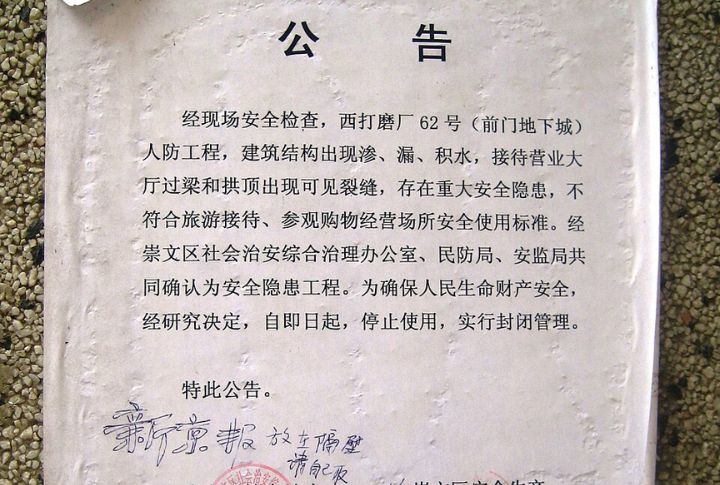 公 告
经现场安全检查，西打磨厂 62 号（前门地下城）
人防工程，建筑结构出现渗、漏、积水，接待营业大
厅过梁和拱顶出现可见裂缝，存在重大安全隐患，不
符合旅游接待、参观购物经营场所安全使用标准。经
崇文区社会治安综合治理办公室、民防局、安监局共
同确认为安全隐患工程。为确保人民生命财产安全，
经研究决定，自即日起，停止使用，实行封闭管理。
特此公告。
新京报 放在隔壁
请自己取
社会治安
崇文区安全生产